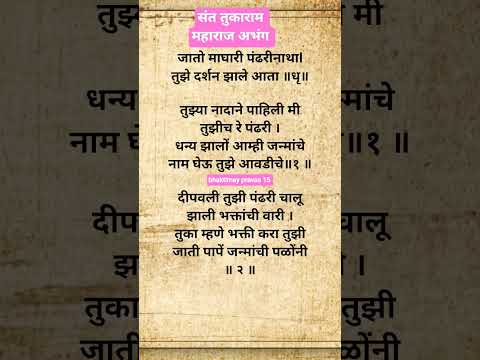 संत तुकाराम
महाराज अभंग
जातो माघारी पंढरीनाथा।
तुझे दर्शन झाले आता ॥धृ॥
तुझ्या नादाने पाहिली मी
तुझीच रे पंढरी ।
धन्य झालों आम्ही जन्मांचे
नाम घेऊ तुझे आवडीचे॥१ ॥
bhaktimay pravas 15
दीपवली तुझी पंढरी चालू
झाली भक्तांची वारी ।
तुका म्हणे भक्ती करा तुझी
जाती पापें जन्मांची पळोंनी
॥ २ ॥